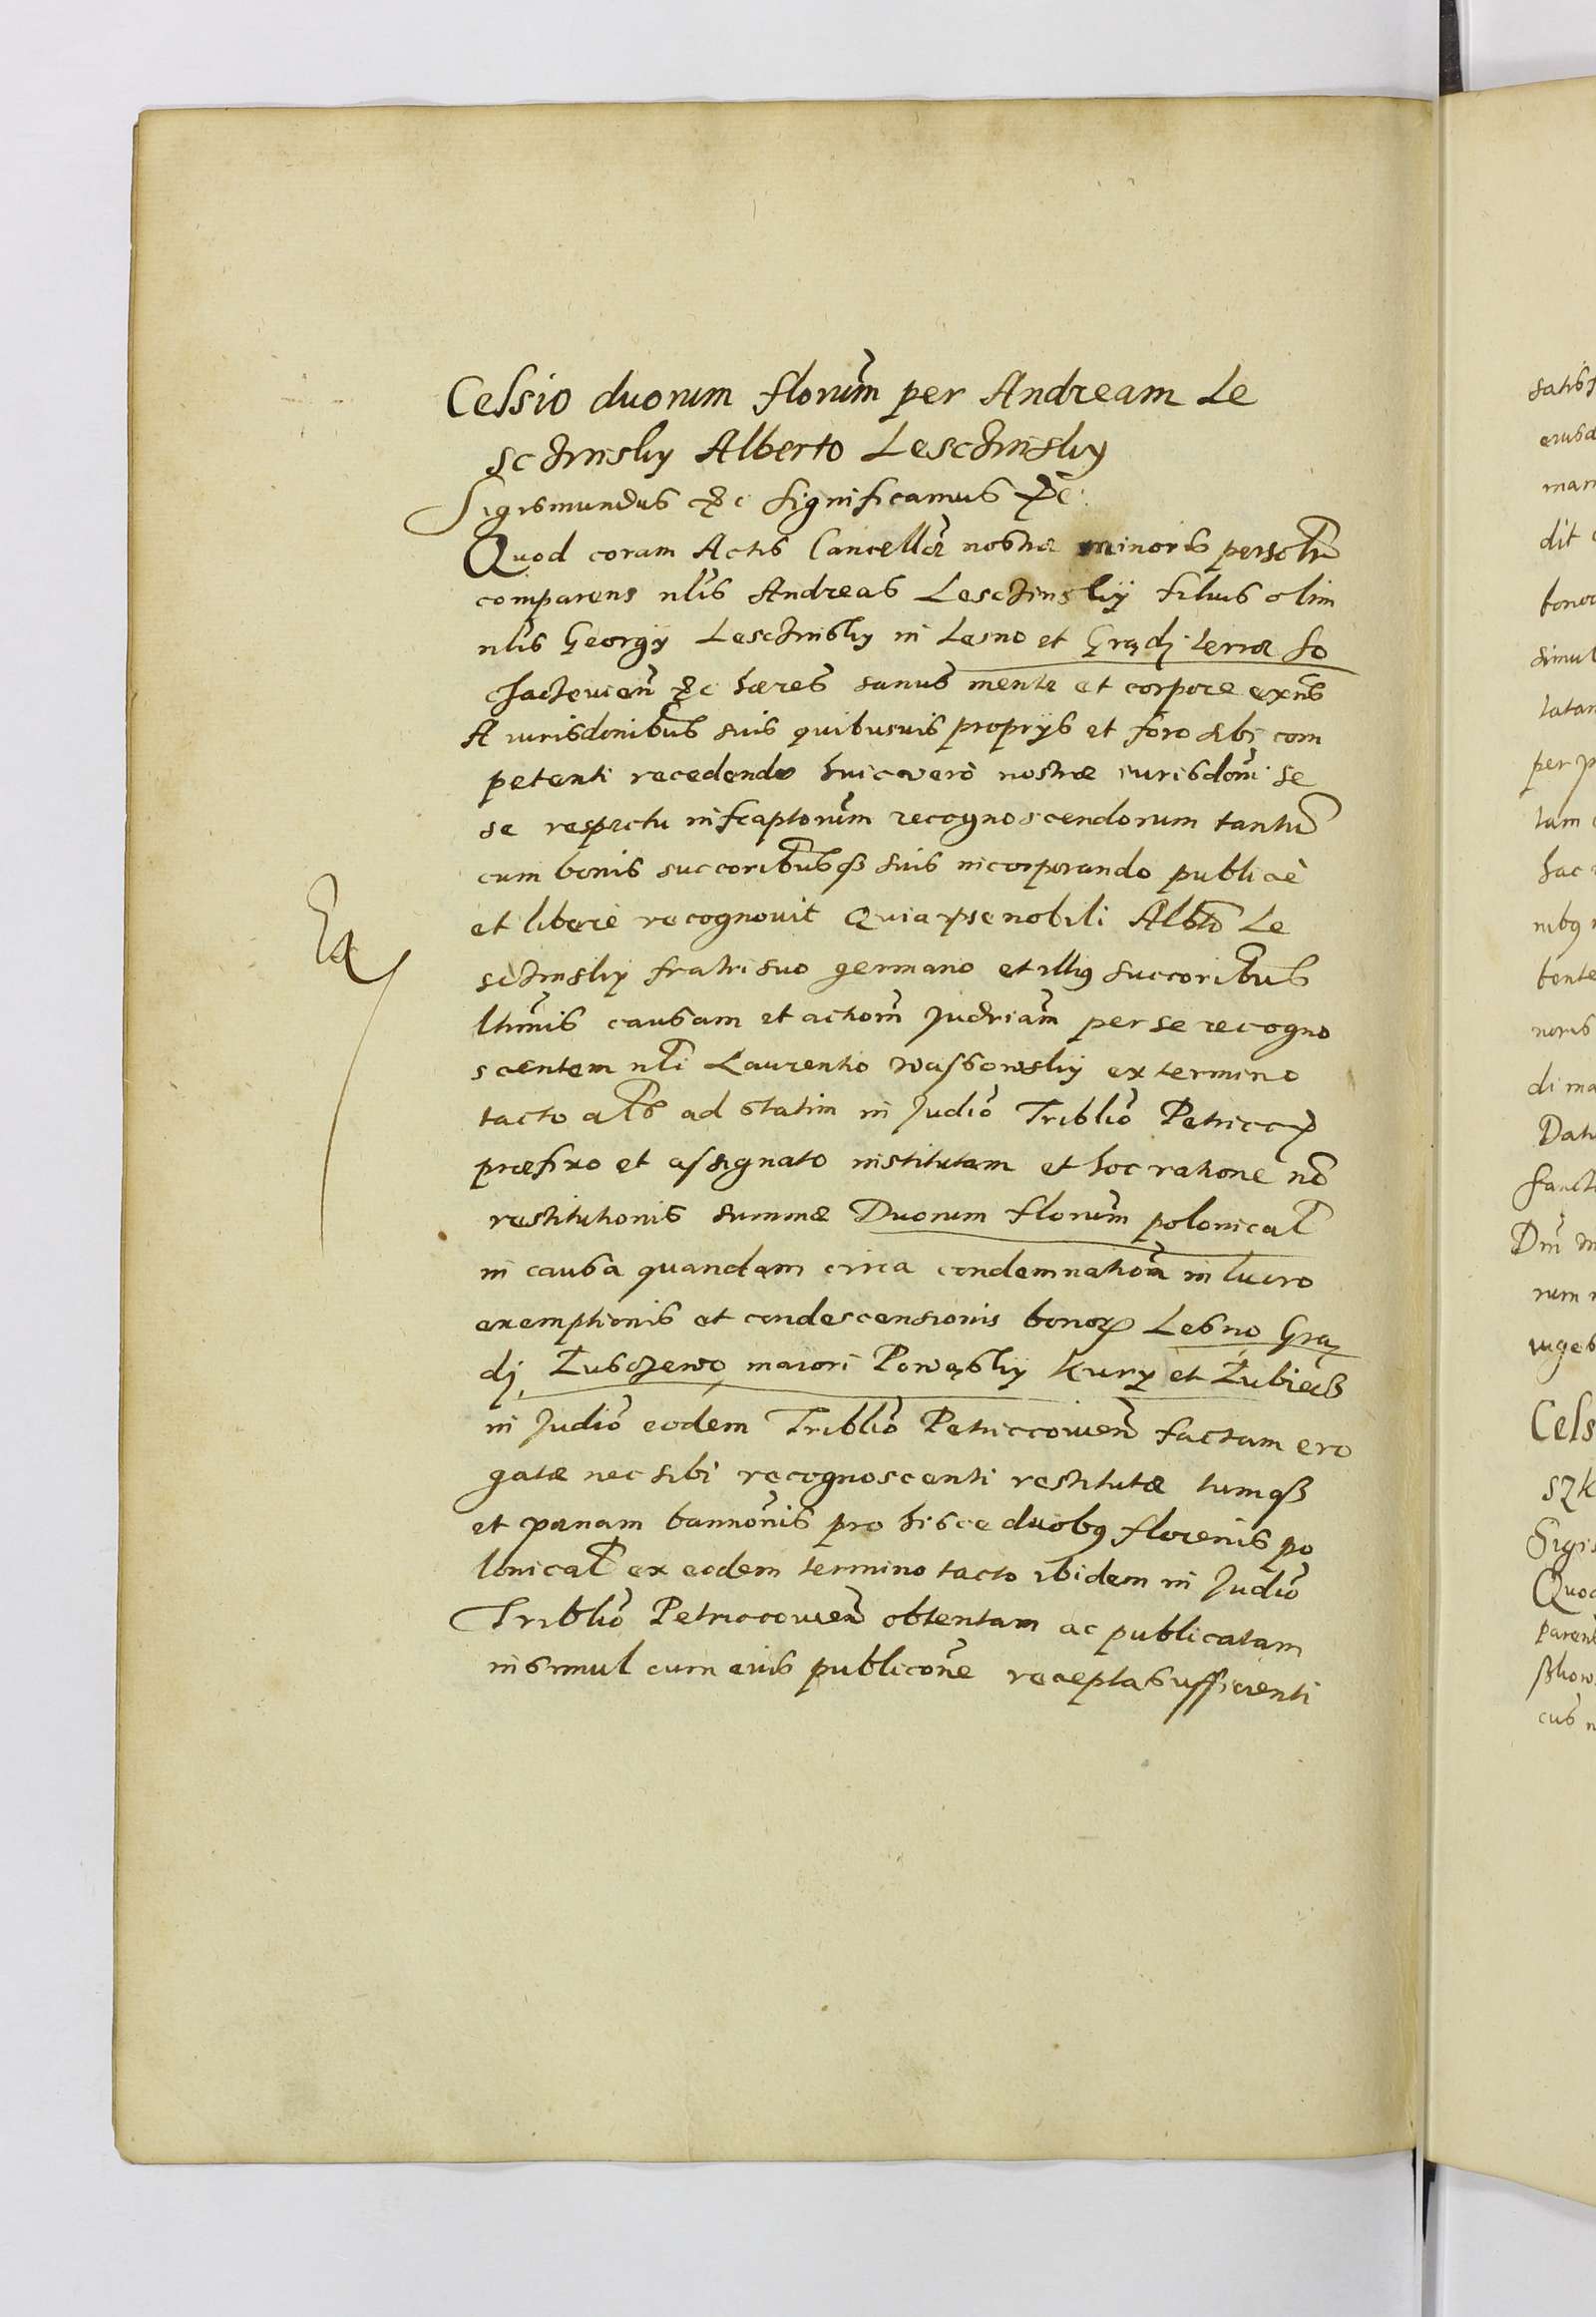 Cessio duorum florum per Andream Le
sczinsky Alberto Lesczinsky
Sigismundus etc significamus etc:
Quod coram Actis Cancellae nostrae minoris persolr
comparens nlis Andreas Lesczinskÿ filius olim
nlis Georgÿ Lesczinsky in Lesno et Grądÿ terrae So
chaczouien etc haeres sanus mente et corpore exns
A iurisdonibus suis quibusuis proprÿs et foro sibi com
petenti recedendo huic vero nostrae iurisdoni se
se respectu infraptorum recognoscendorum tantum
cum bonis succoribusque suis incorporando publicè
et liberè recognouit Quia ipse nobili Albto Le
sczinsky fratri suo germano et illius succoribus
ltimis causam et actiom Judriam per se recogno
scentem nli Laurentio Wassowskÿ ex termino
tacto als ad statim in Judio Triblio Petricc
praefixo et assignato institutam et hoc ratione no
restitutionis summae Duorum florum polonical
in causa quandam circa condemnatiom in lucro
exemptionis et condescensionis bonor Lesno Grą
dÿ Zusczewo maiori Powąskÿ Kurÿ et Zubiecz
in Judio eodem Triblio Petriccouien factam ero
gatae nec sibi recognoscenti restitutae tumque
et paenam bannonis pro hisce duobus florenis po
lonical ex eodem termino tacto ibidem in Judio
Triblio Petriccouien obtentam ac publicatam
insimul cum eius publicone recepta sufficienti
Dat
Cels
szk
Sigis
Quod